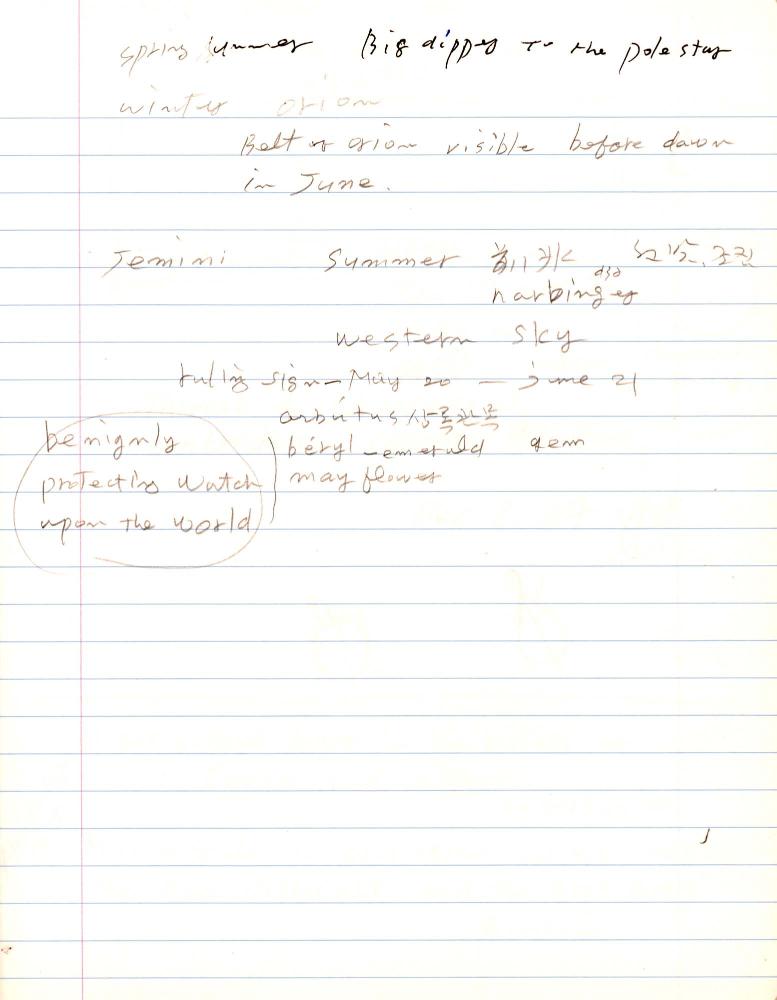 spring summer Big dipper To the pole star
winter orion
Belt of orion visible before dawn
in June.
Jemini Summer 조짐
harbinger
western sky
ruling sign - May 20 - june 21
arbutus 상록관목
benignly
protecting watch
upon the world
beryl - emerald gem
may flower